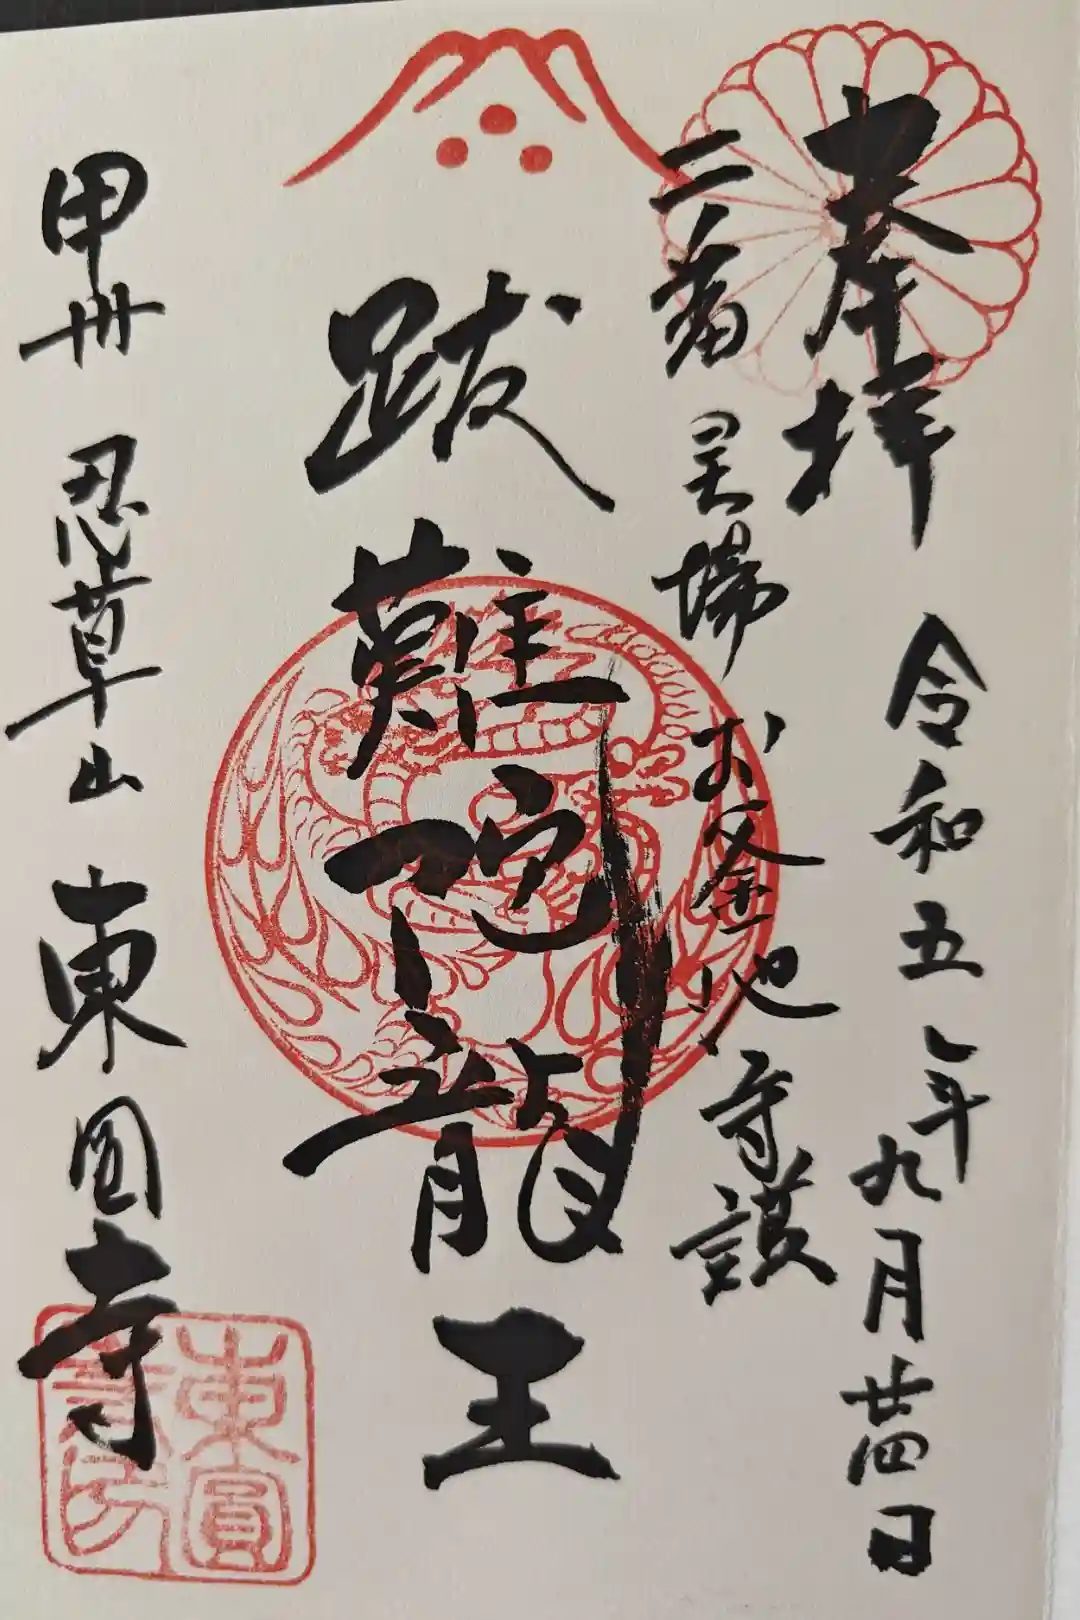 奉拝
令和五年九月廿四日
二番 霊場 お釜池 守護
跋難陀龍王
甲州 忍草山 東圓寺
東圓